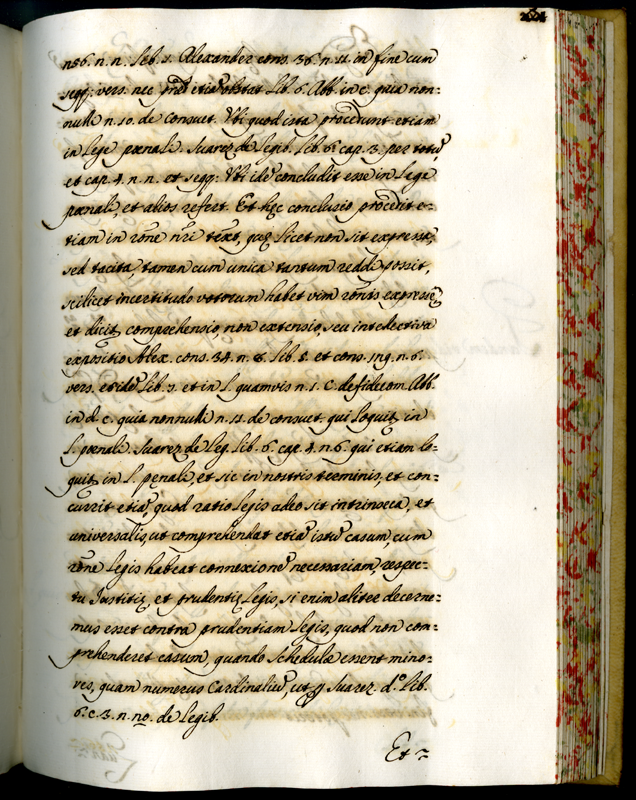 n86. n. n. Lib. 1. Alexander cons. 36. n. 11. in fine cum
seqq: vers. nec pñt etia᷒ obstat Lib. 6. Abb. in c. quia non=
nulli n. 10. de Consuet. Vbi quod ista procedunt etiam
in Lege pœnali. Suarez de Legib. Lib. 6. cap. 3. per totu᷒
et cap. 4. n. n. et seqq: Vbi ide᷒ concludit esse in Lege
pœnali, et alios refert. Et hęc conclusio procedit e=
tiam in rõne nr̃i text, quę licet non sit expressa,
sed tacita, tamen cum unica tantum reddi possit,
scilicet incertitudo votorum habet vim rõnis expressę,
et dicit comprehensio, non extensio, seu intelectiva
expositio Alex. cons. 34. n. 8. Lib. 5. et cons. 119. n. 6.
vers. et ide᷒ Lib. 3. et in L. quamvis n. 1. C. de fideicom. Abb.
in d. c. quia nonnulli n. 11. de consuet. qui Loquit in
L. pœnali. Suarez de Leg. Lib. 6. cap. 4. n. 6. qui etiam Lo=
quit in L. penali, et sic in nostris terminis, et con=
currit etia᷒, quod ratio Legis adeo sit intrinseca, et
universalis, ut comprehendat etia᷒ istu᷒ casum, cum
rõne Legis habeat connexione᷒ necessariam, respec=
tu Justitię, et prudentię Legis, si enim aliter decerne=
mus esset contra prudentiam Legis, quod non com=
prehenderet casum, quando Schedulæ essent mino=
res, quam numerus Cardinaliu᷒, ut p Suarez. d.º Lib.
6. c. 3. n. nº. de Legib.
Et